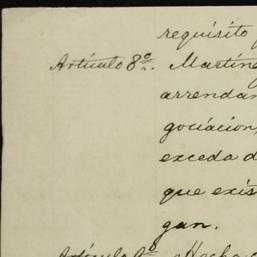 requisito
Artículo 8º. Martíne
arrendan
gociacion
exceda d
que exis
gan.
Artículo 9º Hecha